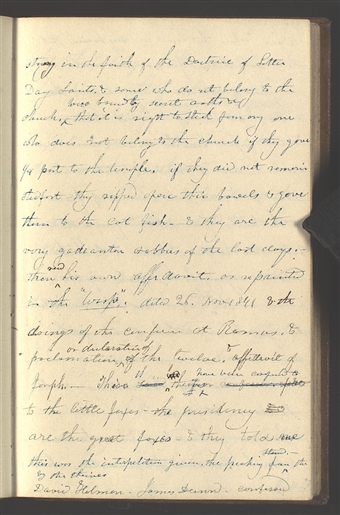 strong in the faith of the Doctrine of Latter
Day Saints, & some who do not belong to the
Church, bound by secret oaths &c
that it is right to steal from any one
who does not belong to the church if they gave
¼ part to the temple. if they did not remain
stedfast they ripped open their bowels & gave
them to the cat fish. & they are the
very gadeanton robbers of the last days.—
then read his own affidavit, as reprinted
in the "Wasp". dated 26. Nov 1841 & the
doings of the conference at Ramus. &
proclamation, or declaration of of the twelve, & affidavit of
Joseph.— have been compared
to the little foxes— the presidency
are the great foxes & they told me
this was the interpretation given, the preaching from the stand.—
& the thieves
David Holman. James Dunn. confessed